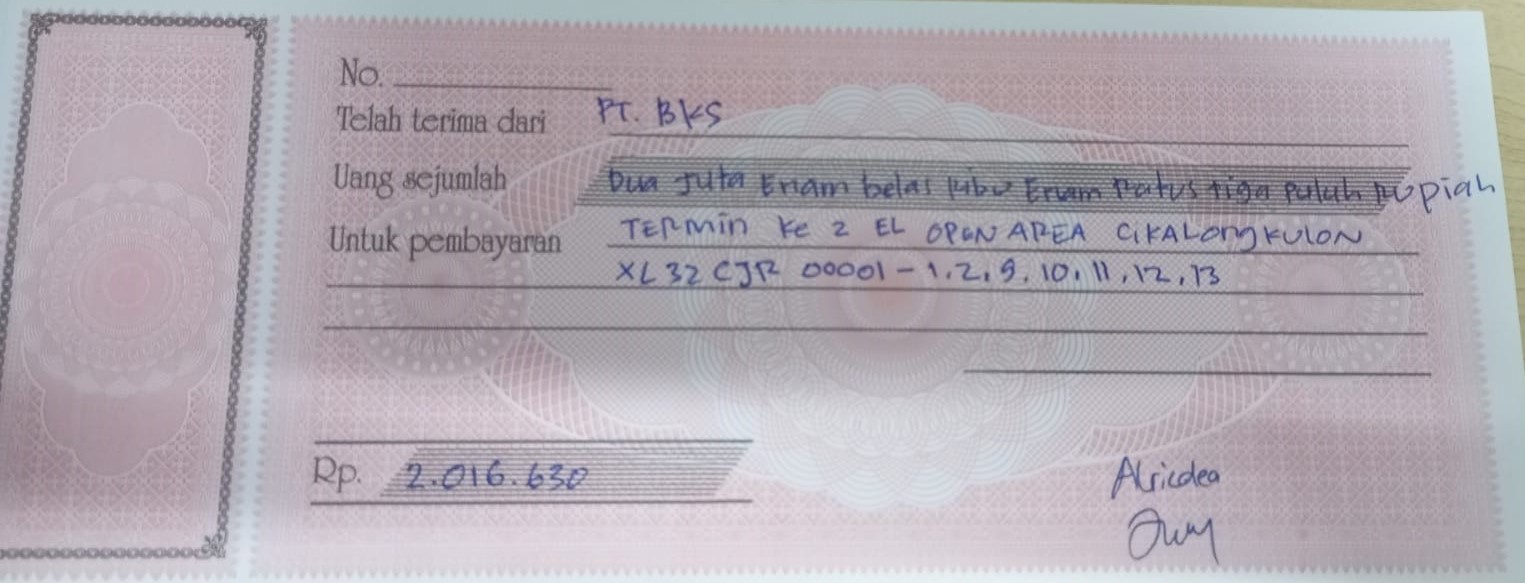 No.
Telah terima dari PT. BKS
Uang sejumlah Dua Juta Enam belas ribu Enam Ratus tiga puluh rupiah
Untuk pembayaran TERMin Ke 2 EL OPEN AREA CIKALongKULON
XL32CJR 00001-1.2,9.10,11,12,13
Rp. 2.016.630
Alricdea